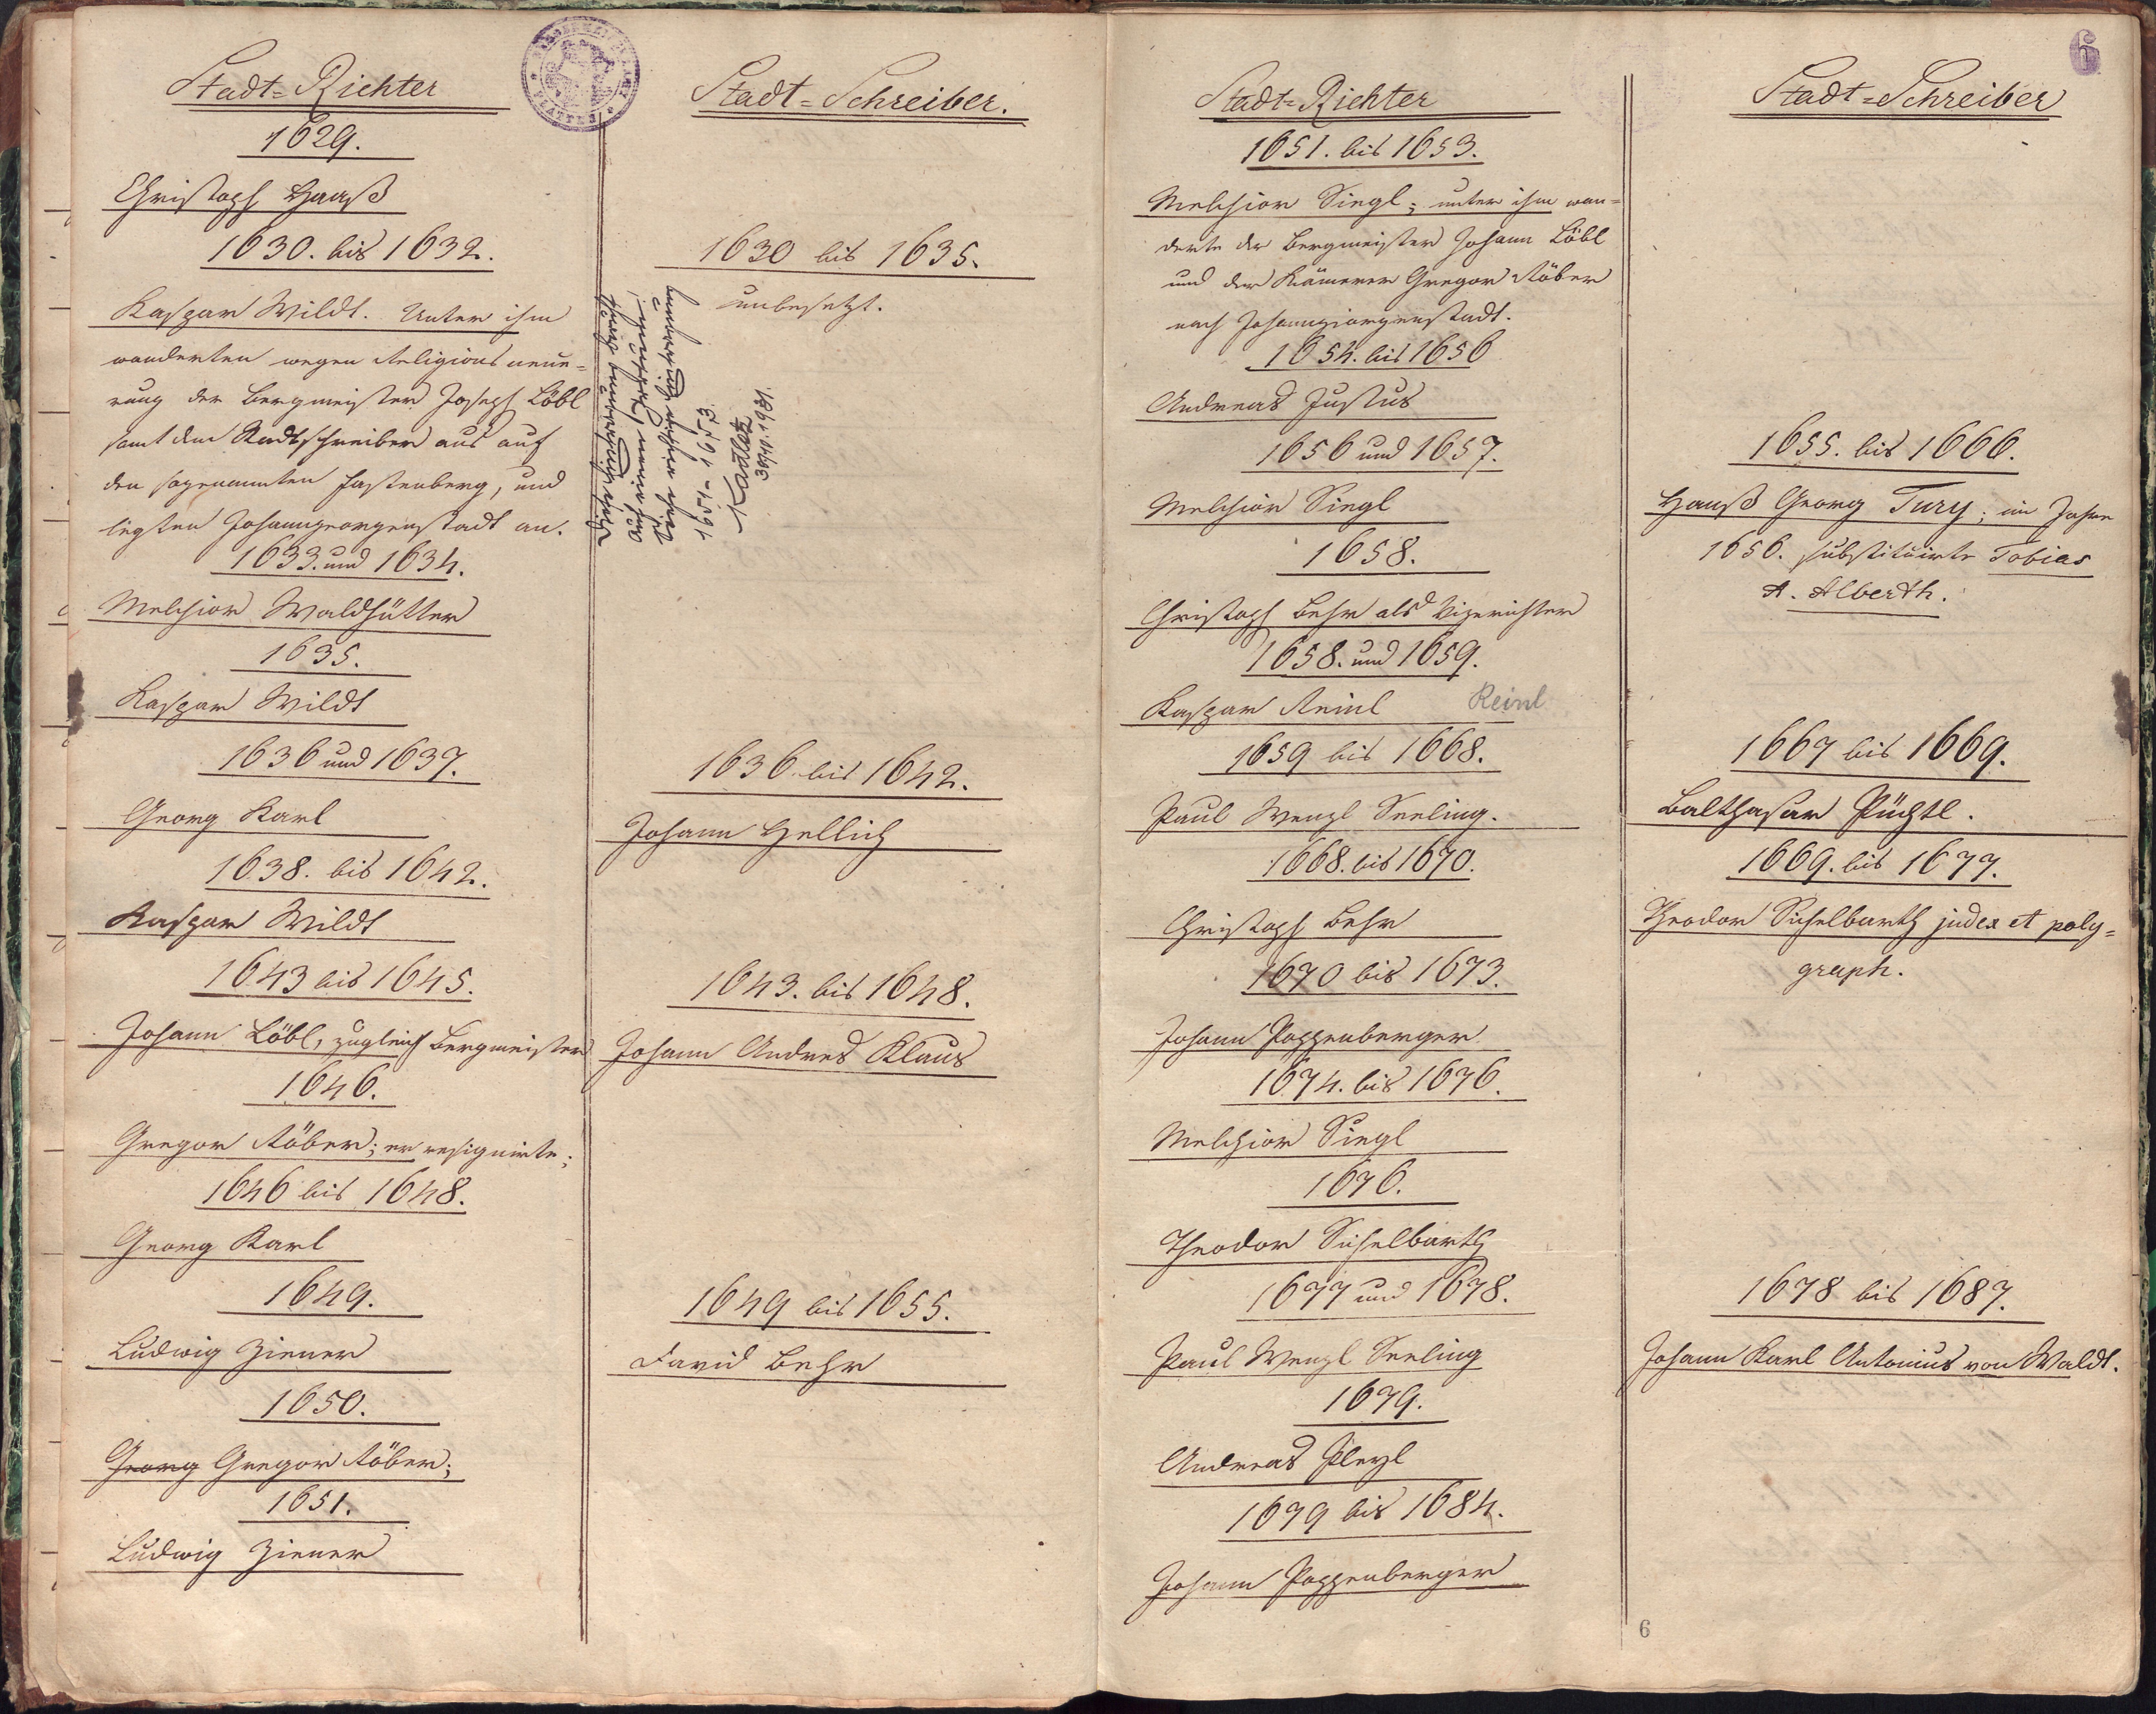 Stadt=Richter
1629.
Christoph Haaß
1630. bis 1632.
Kaspar Wildt. Unter ihm
wanderten wegen Religions neue=
rung der Bergmeister Joseph Löbl
samt dem Stadtschreiber aus auf
den sogenannten Fastenberg, und
legten Johanngeorgenstadt an.
1633. und 1634.
Melchior Waldhütter
1635.
Kaspar Wildt
1636 und 1637.
Georg Karl
1638. bis 1642.
Kaspar Wildt
1643 bis 1645.
Johann Löbl, zugleich Bergmeister
1646.
Gregor Röber; er resignirte;
1646 bis 1648.
Georg Karl
1649.
Ludwig Ziener
1650.
Georg Gregor Röber;
1651.
Ludwig Ziener
Stadt=Schreiber.
1630 bis 1635.
unbesetzt.
1651-1653
1636. bis 1642.
Johann Hellich
1643. bis 1648.
Johann Andreas Klaus
1649 bis 1655.
David Behr
Stadt=Richter
1651. bis 1653.
Melchior Siegl; unter ihm wan=
derte der Bergmeister Johann Löbl
und der Kämerer Gregor Röber
nach Johanngiorgenstadt.
1654. bis 1656
Andreas Justus
1656 und 1657.
Melchior Siegl
1658.
Christoph Behr als Vizerichter
1658. und 1659.
Kaspar Reinl Reinl
1659 bis 1668.
Paul Wenzl Seeling.
1668. bis 1670.
Christoph Behr
1670 bis 1673.
Johann Poppenberger
1674. bis 1676.
Melchior Siegl
1676.
Theodor Sichelbarth
1677 und 1678.
Paul Wenzl Seeling
1679.
Andreas Pleyl
1679 bis 1684.
Johann Poppenberger
6
Stadt=Schreiber
1655. bis 1666.
Hanß Georg Tury; im Jahre
1656. substituirte Tobias
A. Alberth.
1667 bis 1669.
Balthasar Püchtl.
1669. bis 1677.
Theodor Sichelbarth judex et poly=
graph.
1678 bis 1687.
Johann Karl Antonius von Waldt.
6